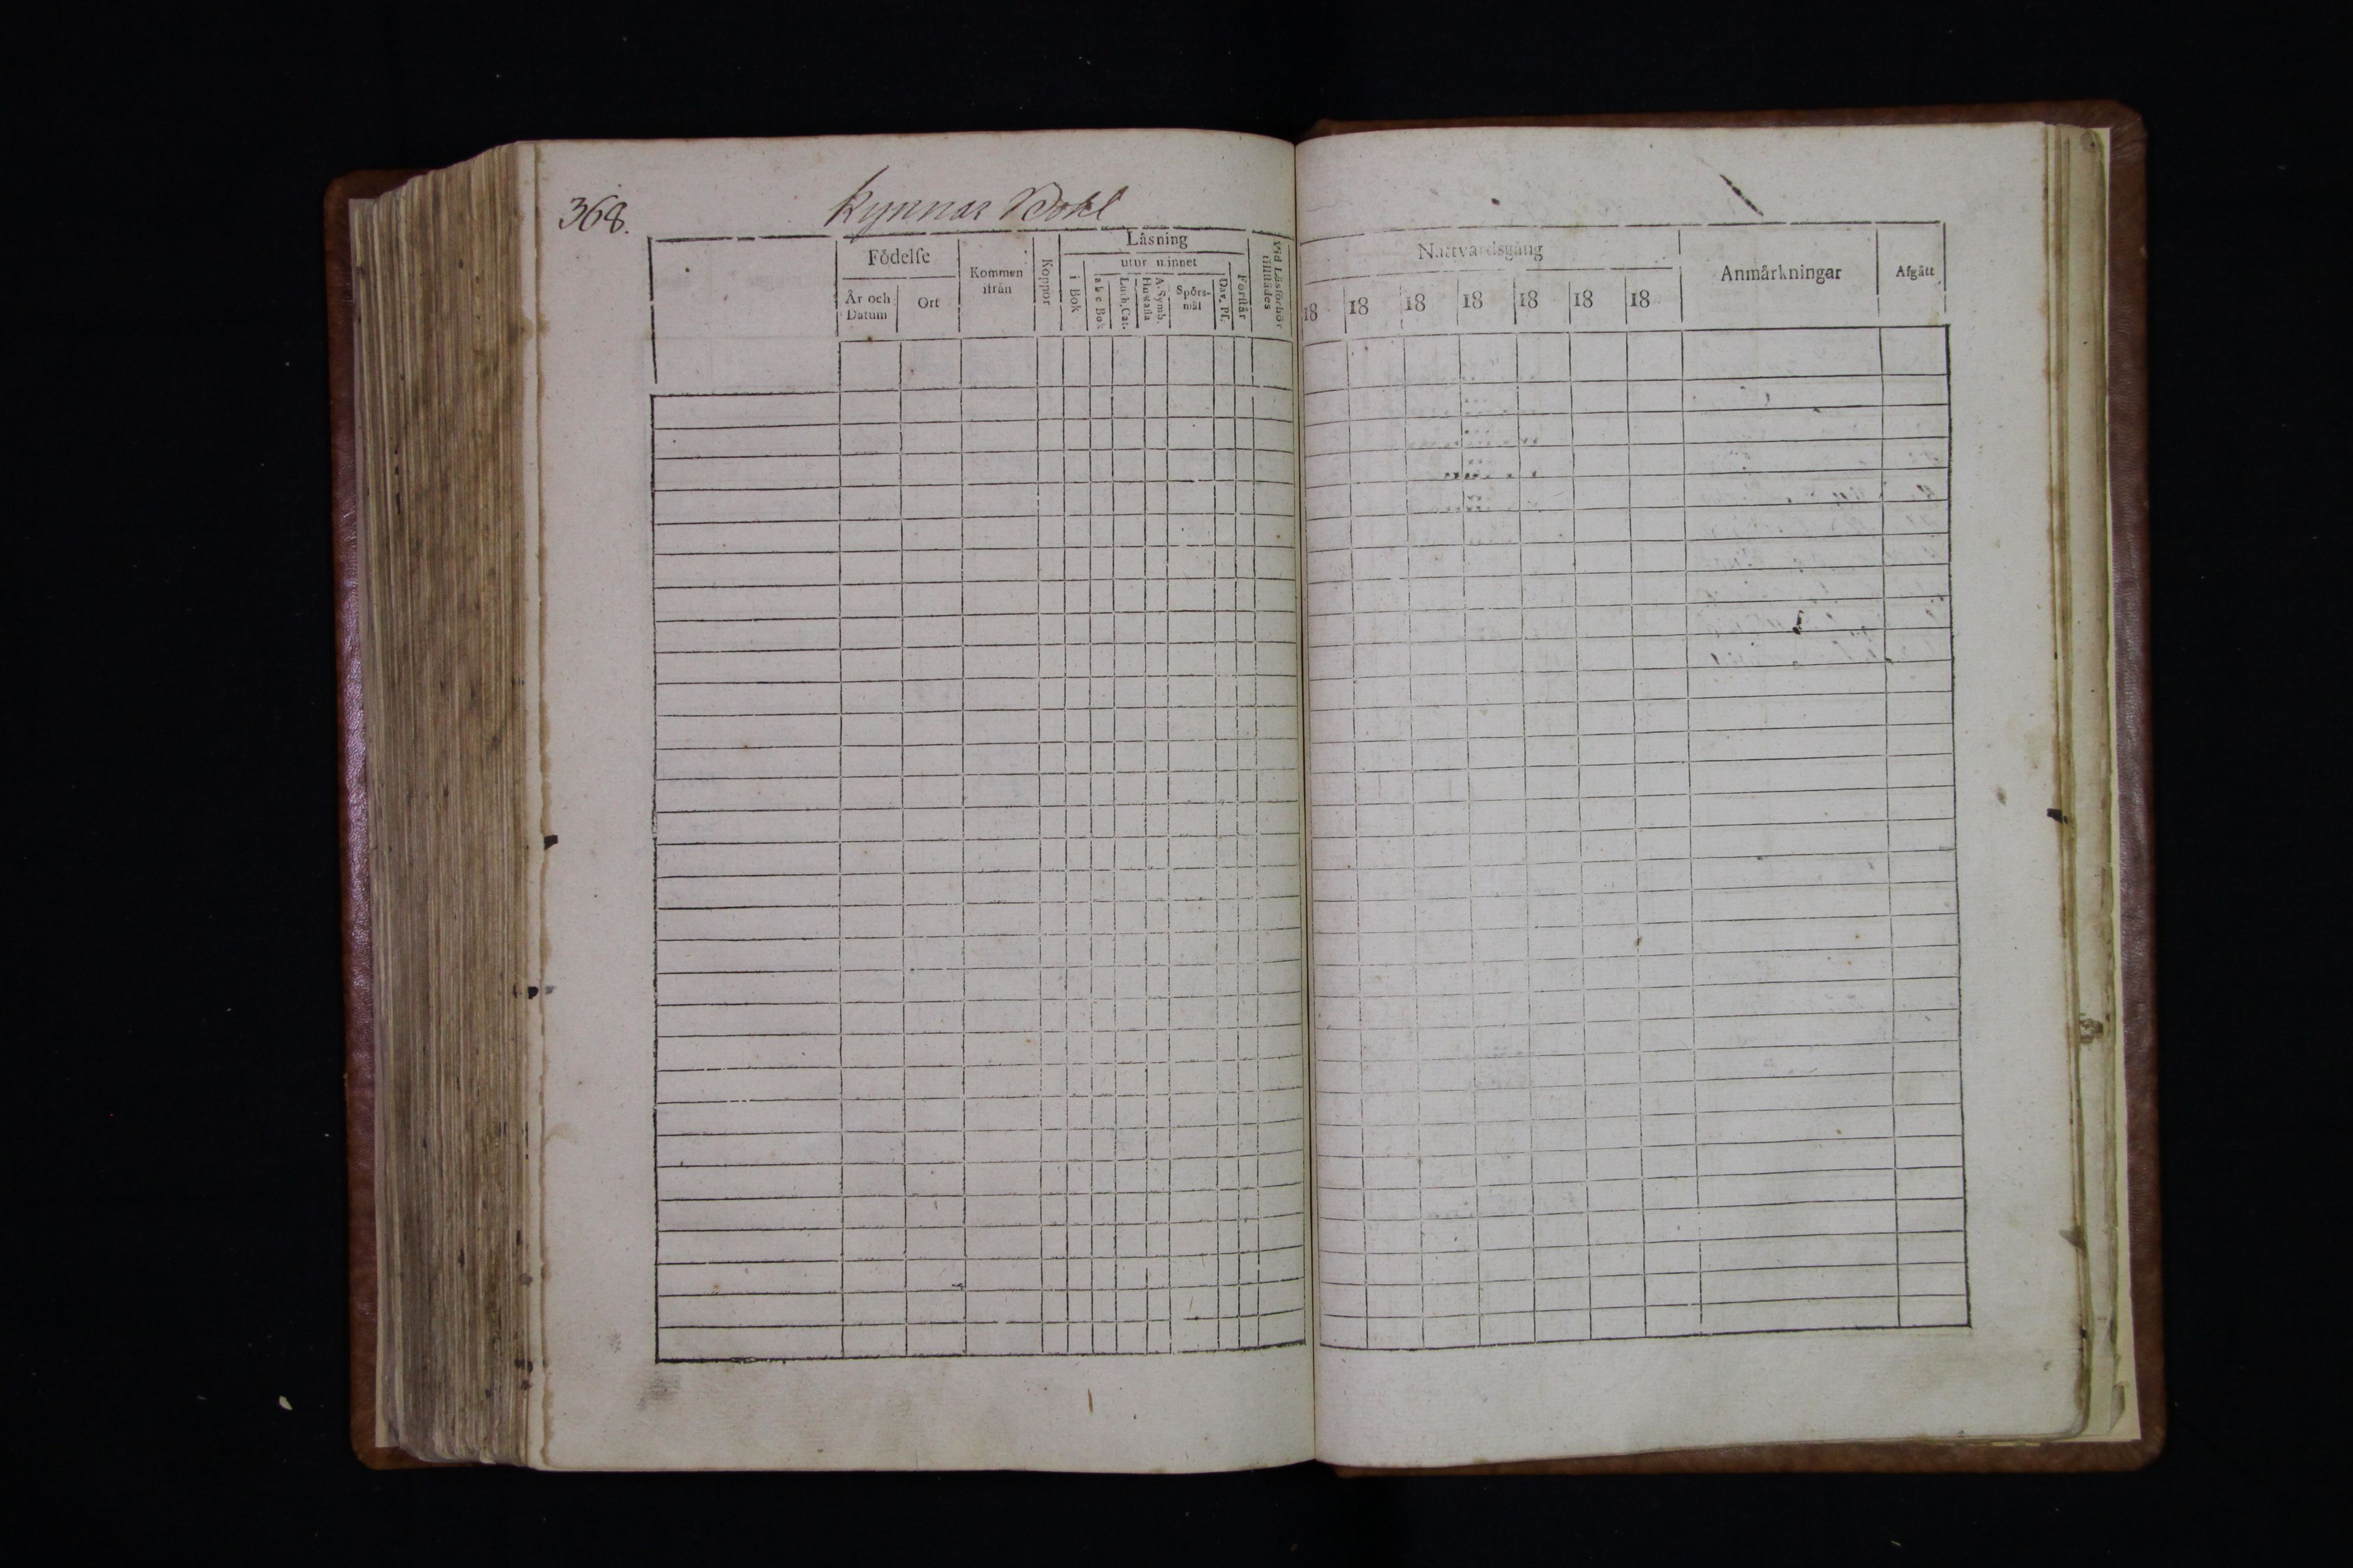 368.
Kynnar Bohl
Födelse
År och Datum
Ort
Kommen ifrån
Koppor
Läsning
i Bok
utur minnet
a b c Bok
Luth. Cat.
A. Symb. Hustafla
Spörsmål
Dav. Ps.
Förstår
Vid Läsförhör tillstädes
Nattvardsgång
18 18 18 18 18 18 18
Anmärkningar
Afgått